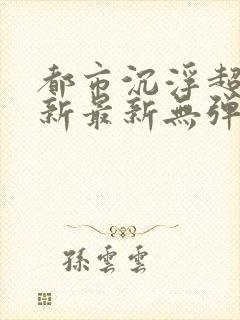 都市沉浮超
新最新無弹
孫雲雲